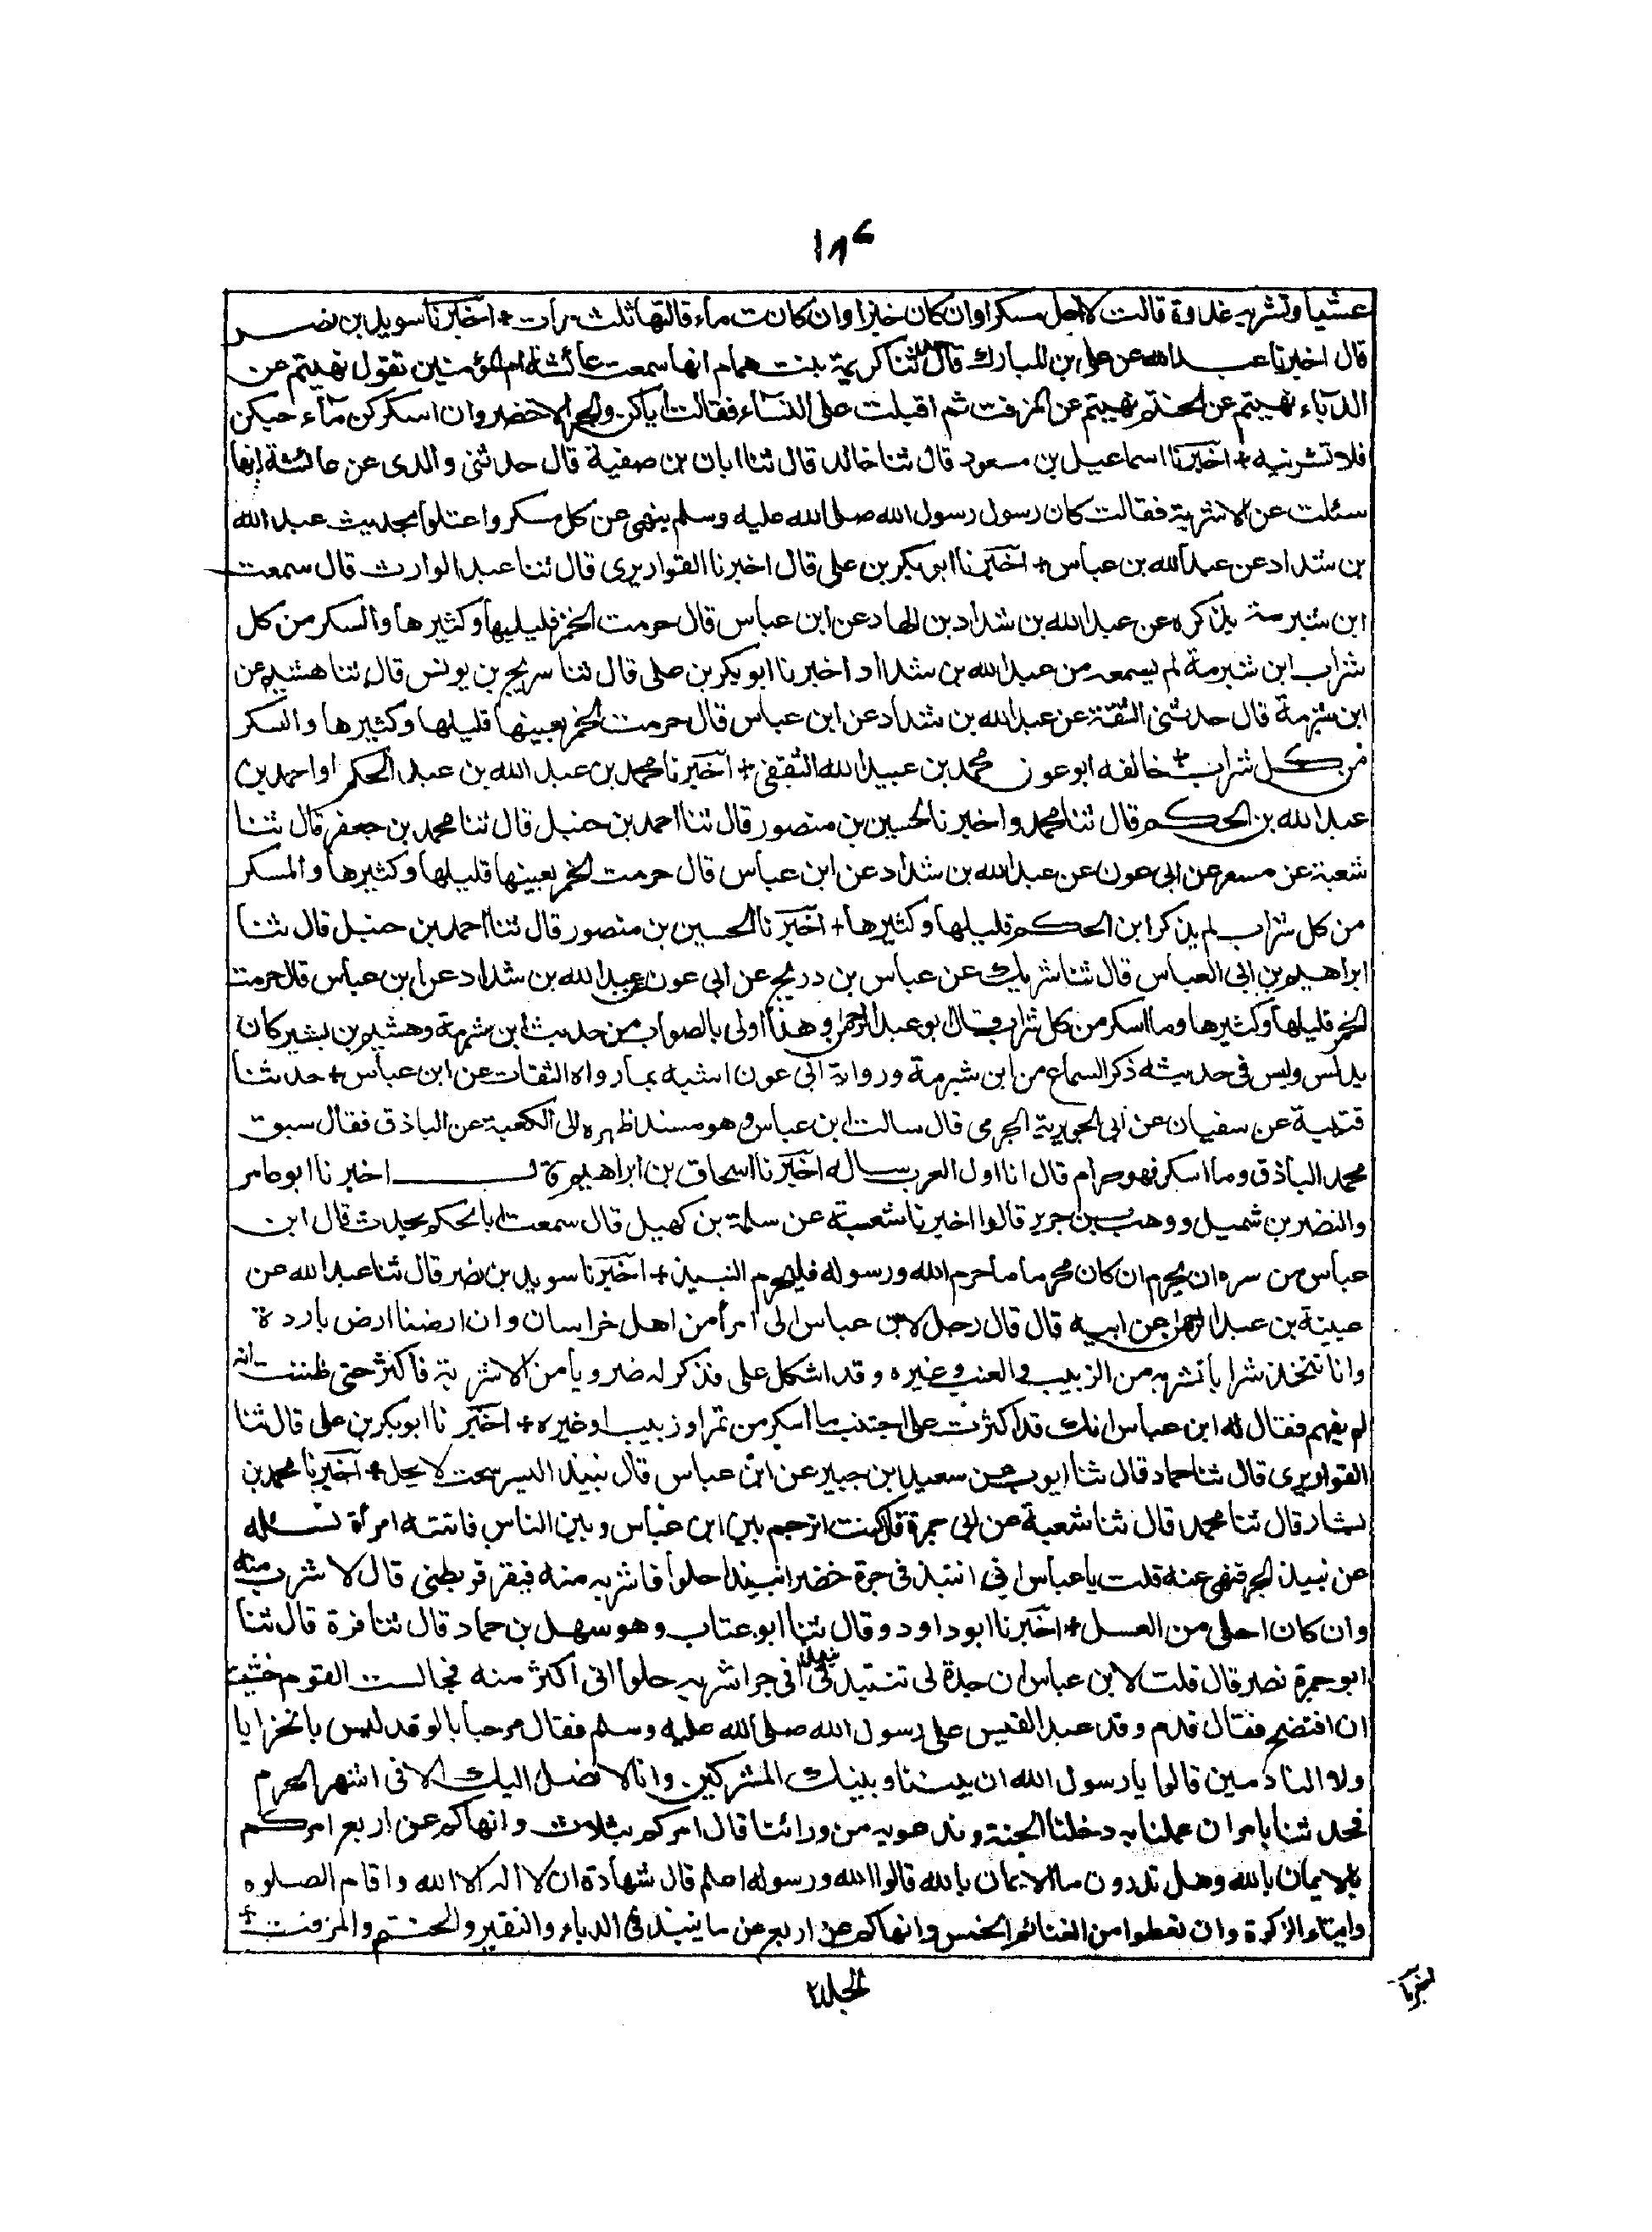 ١٨٤
عشيا وتشربه غدوة قالت لا احل مسكرا وان كان خبزا وان كانت ماء قالتها ثلث مرات + اخبرنا سويد بن نصر
قال اخبرنا عبد الله عن علي بن المبارك قال ثنا كريمة بنت همام انها سمعت عائشة ام المؤمنين تقول نهيتم عن
الدباء نهيتم عن الحنتم نهيتم عن المزفت ثم اقبلت على النساء فقالت اياكن والجر الاخضر وان اسكركن ماء حبكن
فلا تشربنه + اخبرنا اسماعيل بن مسعود قال ثنا خالد قال ثنا ابان بن صفية قال حدثني والدى عن عائشة انها
سئلت عن الاشربة فقالت كان رسول رسول الله صلى الله عليه وسلم ينهى عن كل مسكر واعتلوا بحديث عبد الله
بن شداد عن عبد الله بن عباس + اخبرنا ابى بكر بن على قال اخبرنا القواريرى قال ثنا عبد الوارث قال سمعت
ابن شبرمة يذكره عن عبد الله بن شداد بن الهاد عن ابن عباس قال حرمت الخمر قليليها وكثيرها والسكر من كل
شراب ابن شبرمة لم يسمعه من عبد الله بن شداد اخبرنا ابو بكر بن على قال ثنا سريج بن يونس قال ثنا هشيم عن
ابن شبرمة قال حدثنى الثقة عن عبد الله بن شداد عن ابن عباس قال حرمت الخمر بعينها قليلها وكثيرها والسكر
من كل شراب + خالفه ابو عون محمد بن عبيد الله الثقفى + اخبرنا محمد بن عبد الله بن عبد الحكم او احمد بن
عبد الله بن الحكم قال ثنا محمد واخبرنا الحسين بن منصور قال ثنا احمد بن حنبل قال ثنا محمد بن جعفر قال ثنا
شعبة عن مسعر عن ابى عون عن عبد الله بن شداد عن ابن عباس قال حرمت الخمر بعينها قليلها وكثيرها والمسكر
من كل شراب لم يذكر ابن الحكم قليلها وكثيرها + اخبرنا الحسين بن منصور قال ثنا احمد بن حنبل قال ثنا
ابراهيم بن ابى العباس قال ثنا شريك عن عباس بن دريج عن ابى عون عن عبد الله بن شداد عن ابن عباس قال حرمت
الخمر قليلها وكثيرها وما اسكر من كل شراب قال ابو عبد الرحمن وهذا اولى بالصواب من حديث ابن شبرمة وهشيم بن بشير كان
يدلس وليس فى حديثه ذكر السماع من ابن شبرمة ورواية ابى عون اشبه بما رواه الثقات عن ابن عباس + حدثنا
قتيبة عن سفيان عن ابى الجويرية الجرمى قال سالت ابن عباس وهو مسند ظهره الى الكعبة عن الباذق فقال سبق
محمد الباذق وما اسكر فهو حرام قال انا اول العرب ساله اخبرنا اسحاق بن ابراهيم قال اخبرنا ابو عامر
والنضر بن شميل ووهب بن جرير قالوا اخبرنا شعبة عن سلمة بن كهيل قال سمعت ابا الحكم يحدث قال ابن
عباس من سره ان يحرم ان كان محرما ما حرم الله ورسوله فليحرم النبيذ + اخبرنا سويد بن نصر قال ثنا عبد الله عن
عيينة بن عبد الرحمن عن ابيه قال قال رجل لابن عباس انى امرأ من اهل خراسان وان ارضنا ارض باردة
وانا نتخذ شرابا نشربه من الزبيب والعنب وغيره وقد اشكل على فذكر له ضروبا من الاشربة فاكثر حتى ظننت انه
لم يفهم فقال له ابن عباس انك قد اكثرت على اجتنب ما اسكر من تمر او زبيب او غيره + اخبرنا ابو بكر بن على قال ثنا
القواريرى قال ثنا حماد قال ثنا ايوب عن سعيد بن جبير عن ابن عباس قال نبيذ البسر سحت لا يحل + اخبرنا محمد بن
بشار قال ثنا محمد قال ثنا شعبة عن ابى جمرة قال كنت اترجم بين ابن عباس وبين الناس فاتته امرأة تسئله
عن نبيذ الجر فنهى عنه قلت يا عباس انى انتبذ فى جرة خضراء نبيذا حلوا فاشربه منه فيقرقر بطنى قال لا تشرب منه
وان كان احلى من العسل + اخبرنا ابو داود وقال ثنا ابو عتاب وهو سهل بن حماد قال ثنا قرة قال ثنا
ابو جمرة نصر قال قلت لابن عباس ان جدة لى تنتبذ لى نبيذا فى جر اشربه حلوا انى اكثر منه فجالست القوم خشيت
ان افتضح فقال قدم وفد عبد القيس على رسول الله صلى الله عليه وسلم فقال مرحبا بالوفد ليس بالخزايا
ولا النادمين قالوا يا رسول الله ان بيننا وبينك المشركين وانا لا نصل اليك الا فى اشهر الحرم
فحدثنا بامر ان عملنا به دخلنا الجنة وندعو به من ورائنا قال امركم بثلاث وانهاكم عن اربع امركم
بالايمان بالله وهل تدرون ما الايمان بالله قالوا الله ورسوله اعلم قال شهادة ان لا اله الا الله واقام الصلوه
وايتاء الزكوة وان تعطوا من الغنائم الخمس وانهاكم عن اربع عن ما ينبذ فى الدباء والنقير والحنتم والمزفت +
المجلد٢
اخبرنا